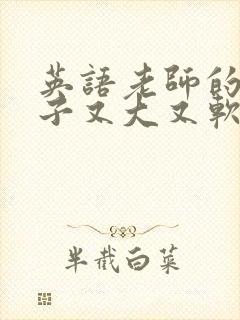 英語老師的
子又大又軟
半截白菜